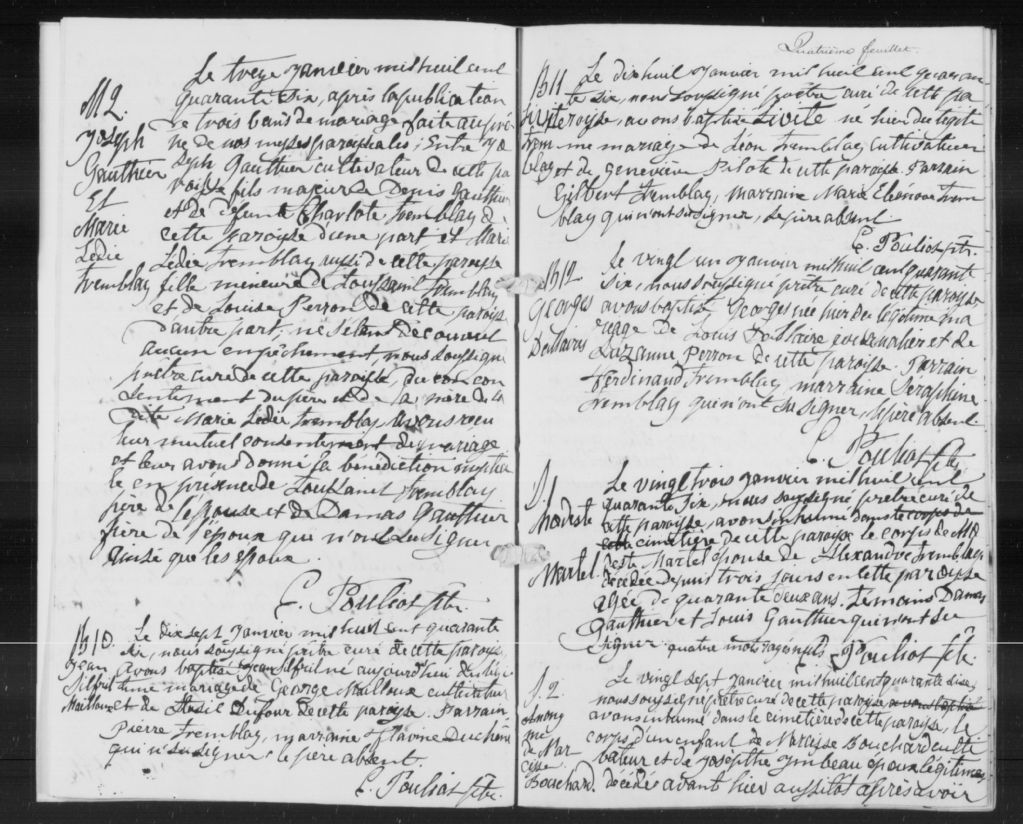 M 2.
Joseph
Gauthier
Et
Marie
Lédie
Tremblay
Le treize Janvier mil huit cent
quarante six, après la publication
de trois bans de mariage faite au prô
ne de nos messes paroissiales ; Entre Jo
seph Gauthier cultivateur de cette pa
roisse fils majeur de Denis Gauthier
et de défunte Charlote Tremblay de
cette paroisse d'une part, et Marie
Lédie Tremblay aussi de cette paroisse
fille mineure de Toussaint Tremblay
et de Louise Perron de cette paroisse
d'autre part ; ne s'étant découvert
aucun empêchement, nous soussigné
prêtre curé de cette paroisse, du con
sentement du père et de la mère de la
dite Marie Lédie Tremblay avons reçu
leur mutuel consentement de mariage
et leur avons donné la bénédiction nuptia
le en présence de Toussaint Tremblay
père de l'épouse et de Damas Gauthier
frère de l'époux qui n'ont su signer
ainsi que les époux.
C. Pouliot Ptr.
B 10.
Jean
Silfrid
Mailloux
Le dix sept Janvier mil huit cent quarante
six, nous soussigné prêtre curé de cette paroisse
avons baptisé Jean Silfrid né aujourd'hui du légi
time mariage de George Mailloux cultivateur
et de Dufour de cette paroisse. Parrain
Pierre Tremblay, marraine Flavine Duchêne
qui n'su signer le père absent.
C. Pouliot Ptr.
Quatrième feuillet.
B 11
Livite
Trem
blay
Le dix huit Janvier mil huit cent quaran
te six, nous soussigné prêtre curé de cette pa
roisse, avons baptisé Livite né hier du légiti
me mariage de Léon Tremblay cultivateur
et de Geneviève Pilote de cette paroisse. Parrain
Gilbert Tremblay, marraine Marie Eléonore Trem
blay qui n'ont su signer, le père absent.
C. Pouliot Ptr.
B 12
Georges
Dallaire
Le vingt un Janvier mil huit cent quarante
six, nous soussigné prêtre curé de cette paroisse
avons baptisé Georges née hier du légitime ma
riage de Louis Dallaire et de
Suzanne Perron de cette paroisse. Parrain
Ferdinand Tremblay marraine Séraphine
Tremblay qui n'ont su signer, le père absent.
C. Pouliot Ptr.
S. 1
Modeste
Martel.
Le vingt trois Janvier mil huit cent
quarante six, nous soussigné prêtre curé de
cette paroisse, avons inhumé dans le corps de
cette cimetière de cette paroisse le corps de Mo
deste Martel épouse de Alexandre Tremblay
décédée depuis trois jours en cette paroisse
agée de quarante deux ans. Témoins Damas
Gauthier et Louis Gauthier qui n'ont su
signer quatre mots rayés nuls C. Pouliot Ptr.
S. 2.
Anony
me
de Nar
cisse
Bouchard.
Le vingt sept Janvier mil huit cent quarante six,
nous soussigné prêtre curé de cette paroisse, avons baptisé
avons inhumé dans le cimetière de cette paroisse, le
corps d'un enfant de Narcisse Bouchard culti
vateur et de Josephte Gimbeau époux légitimes,
décédé avant hier aussitôt après avoir